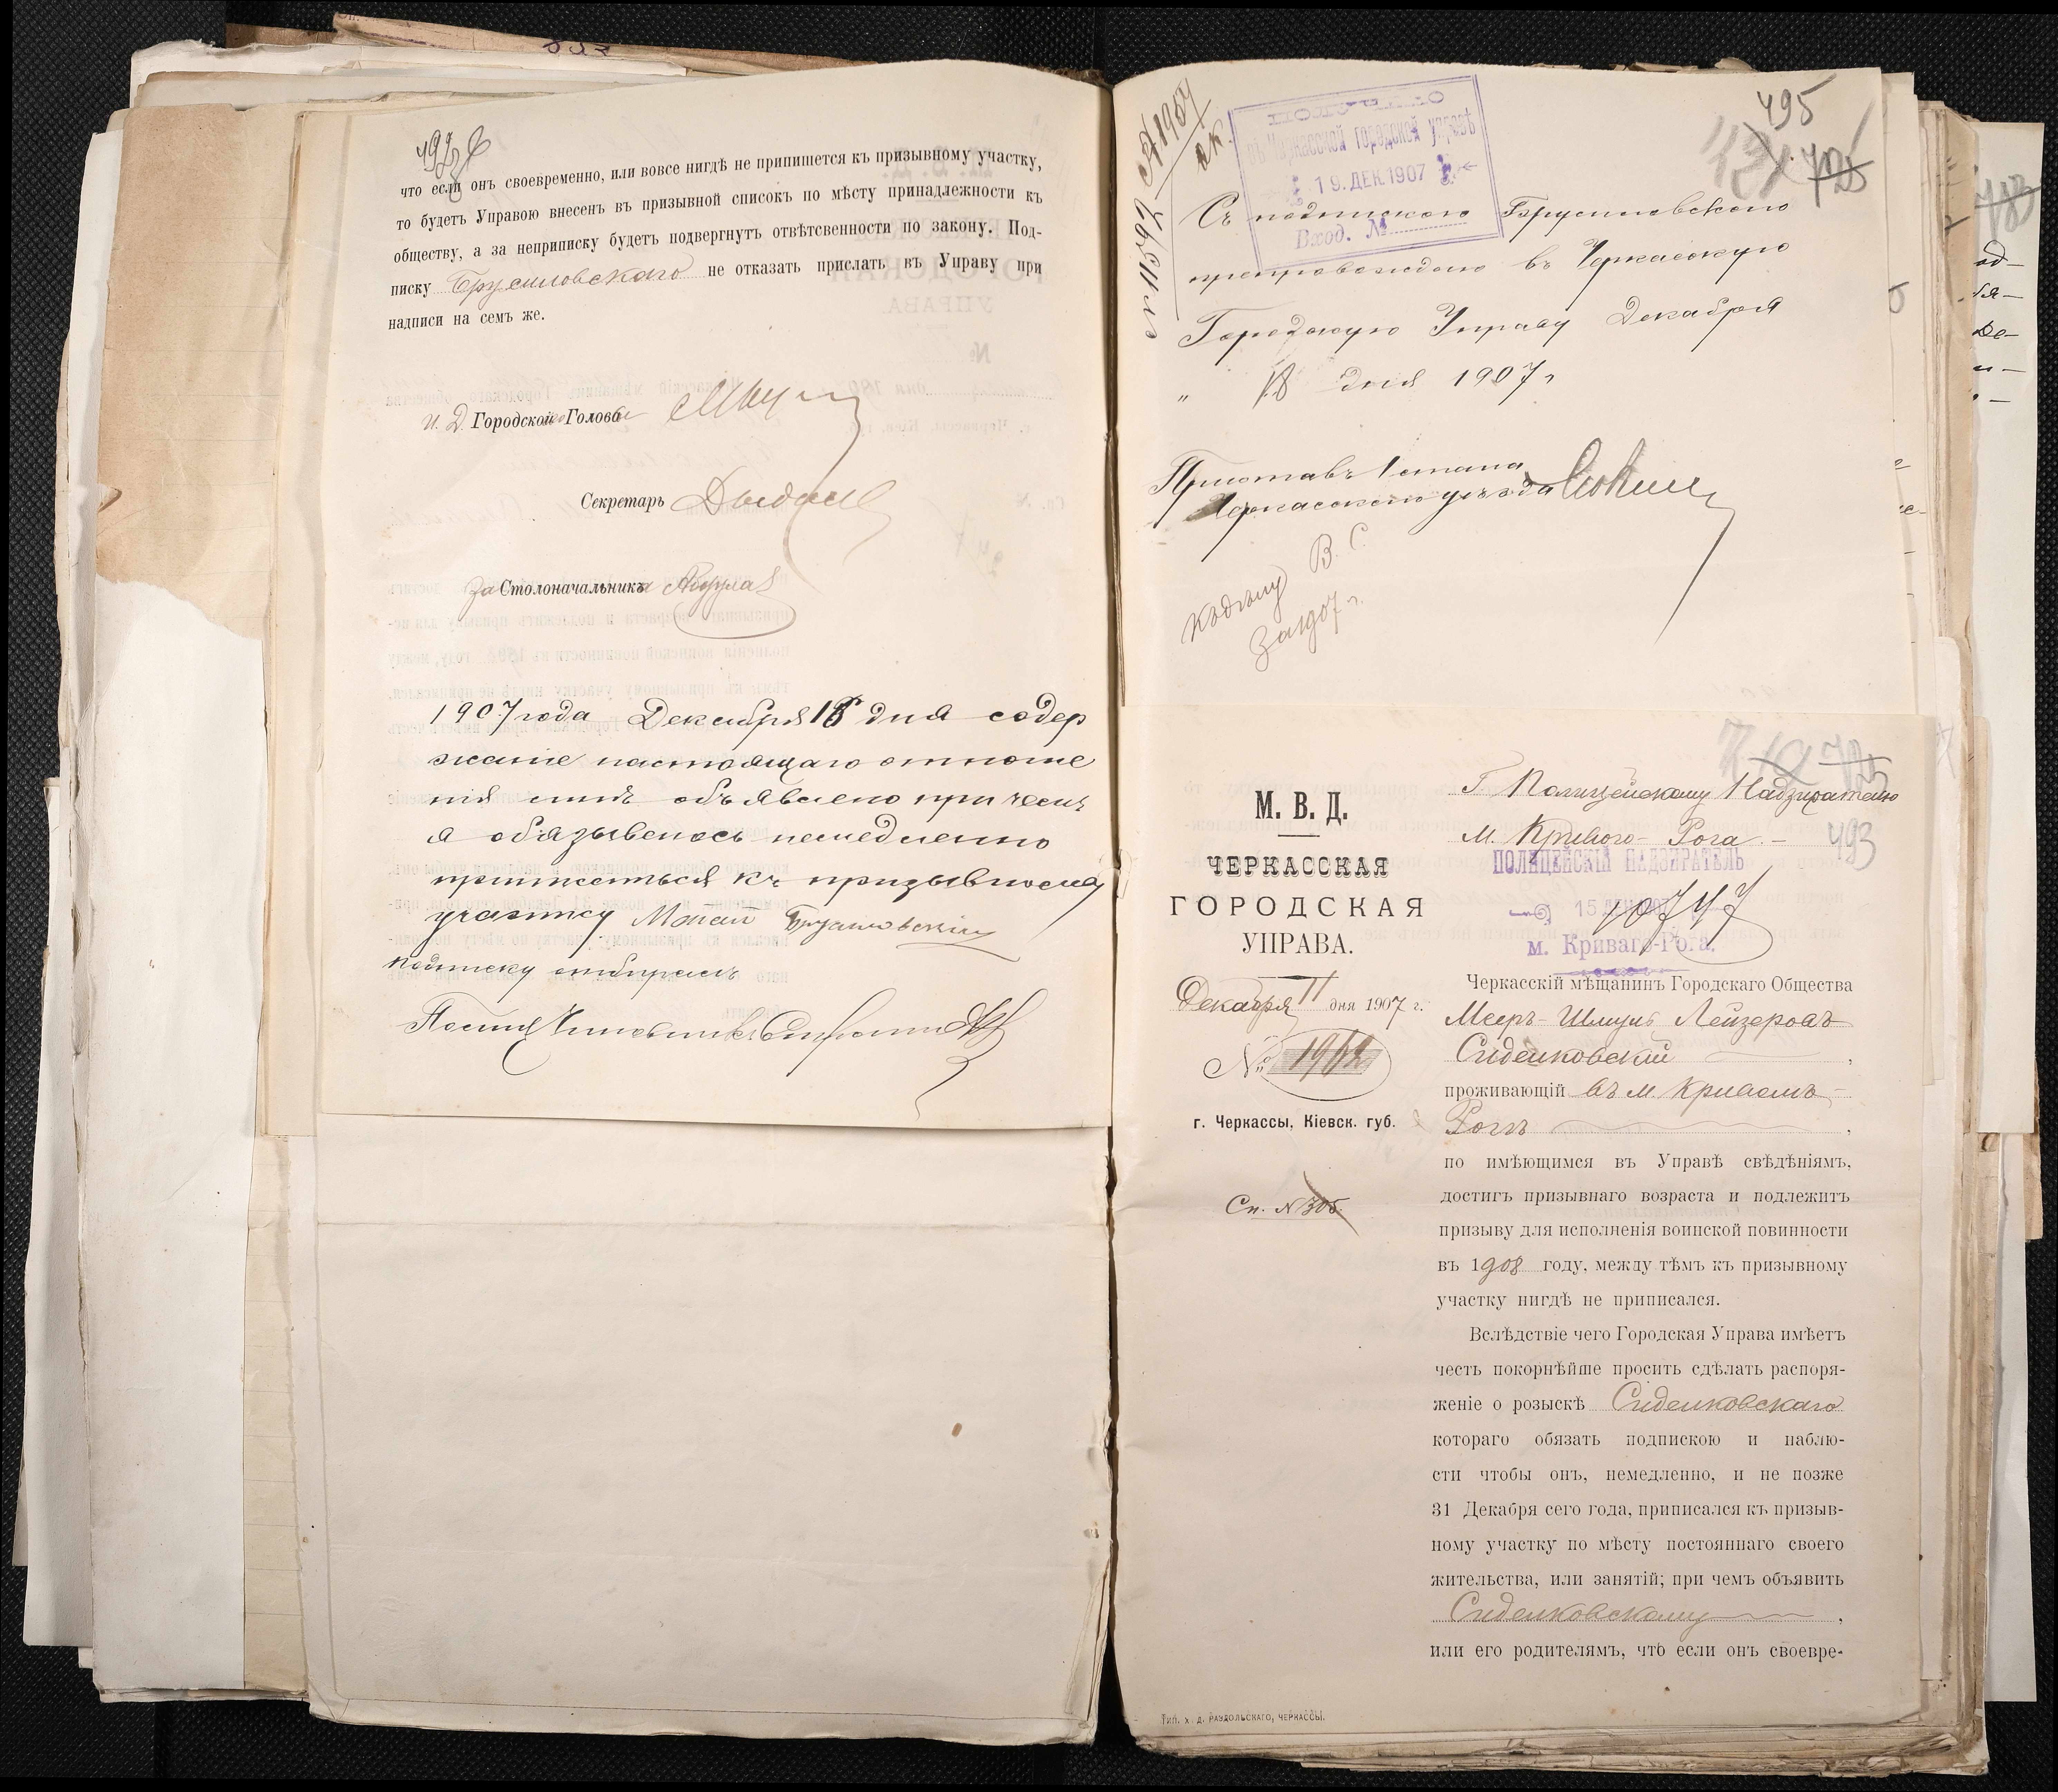 что если онъ своевременно, или вовсе нигдѣ не припишется къ призывному участку,
то будетъ Управою внесенъ въ призывной списокъ по мѣсту принадлежности къ
обществу, а за неприписку будетъ подвергнутъ отвѣтсвенности по закону. Под-
писку Брусиловскаго не отказать прислать въ Управу при
надписи на семъ же.
И. Д. Городского Головы
Секретарь
За Столоначальника
1907 года Декабря 18 дня содер
жание настоящаго отноше
нія мнѣ объявлено при чемъ
я обязываюсь немедленно
приписаться къ призывному
участку Брусиловскій
подписку отбиралъ
495
въ Черкасской городской управѣ
19. ДЕК. 1907
Вход. №
Съ подпискою Брусиловскаго
препровождаю въ Черкасскую
Городскую Управу Декабря
„ 18 дня 1907 г
Приставъ 1 стана
Черкасскаго уѣзда
Къ дѣлу В. С.
За 1907 г.
М. В. Д.
ЧЕРКАССКАЯ
ГОРОДСКАЯ
УПРАВА.
Декабря 11 дня 1907 г.
№
г. Черкассы, Кіевск. губ.
Сп. № 306.
Г. Полицейскому Надзирателю
м. Кривого-Рога.
493
ПОЛИЦЕЙСКІЙ НАДЗИРАТЕЛЬ
15 ДЕК 1907
10747
м. Криваго-Рога.
Черкасскій мѣщанинъ Городскаго Общества
Мееръ-Шмуль Лейзеровъ
Сиделковскій ,
проживающій въ м. Кривомъ-
Рогѣ ,
по имѣющимся въ Управѣ свѣдѣніямъ,
достигъ призывнаго возраста и подлежитъ
призыву для исполненія воинской повинности
въ 1908 году, между тѣмъ къ призывному
участку нигдѣ не приписался.
Вслѣдствіе чего Городская Управа имѣетъ
честь покорнѣйше просить сдѣлать распоря-
женіе о розыскѣ Сиделковскаго
котораго обязать подпискою и наблю-
сти чтобы онъ, немедленно, и не позже
31 Декабря сего года, приписался къ призыв-
ному участку по мѣсту постояннаго своего
жительства, или занятій; при чемъ объявить
Сиделковскому ,
или его родителямъ, что если онъ своевре-
Тип. Х. Д. РАЗДОЛЬСКАГО, ЧЕРКАССЫ.